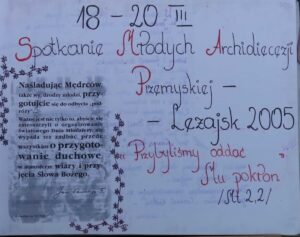 18 - 20 III
Spotkanie Młodych Archidiecezji
Przemyskiej -
- Leżajsk 2005
"Przybyliśmy oddać
Mu pokłon"
/Mt 2,2/
Naśladując Mędrców,
także wy, drodzy młodzi, przy-
gotujcie się do odbycia „pod-
róży”
Ważne jest nie tylko to, abyście się
zatroszczyli o
światowego Dnia Młodzieży, ale
wypada też zadbać przede
wszystkim O przygoto-
wanie duchowe,
w atmosferze wiary i przy-
jęcia Słowa Bożego.